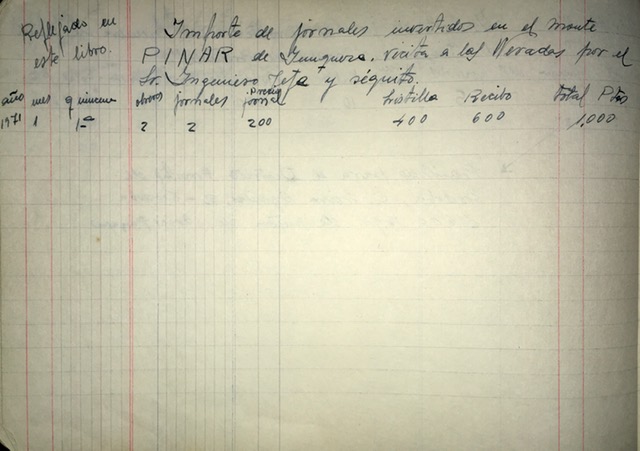 Reflejado en
este libro.
Importe de jornales invertidos en el monte
PINAR de Yunquera, vicita a las Nevadas por el
Sr. Ingeniero Jefe y séquito.
año mes quincena obreros jornales precio jornal Listilla Recibo total Ptas
1971 1 1ª 2 2 200 400 600 1,000